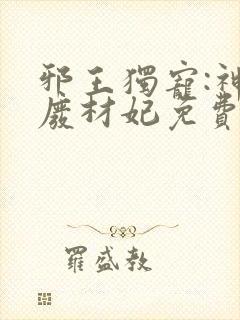 邪王獨寵:神
廢材妃免費
羅盛教